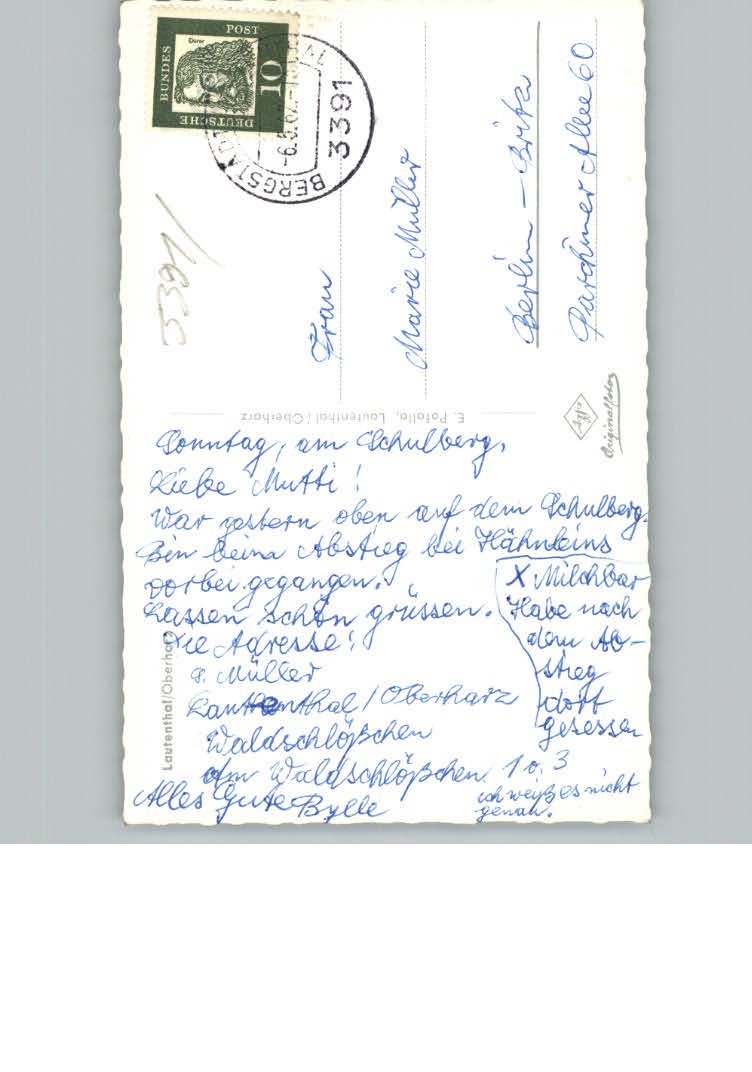 DEUTSCHE
BUNDES
POST
Dürer
10
BERGSTADT
-6.5.62.-
3391
5391/
Frau
Marie Müller
Berlin - Britz
Parchimer Allee 60
E. Pofalla, Lautenthal/Oberharz
Agfa
Originalfoto
Lautenthal/Oberharz
Sonntag, am Schulberg,
Liebe Mutti!
War gestern oben auf dem Schulberg.
Bin beim Abstieg bei Hähnleins
vorbei gegangen.
Lassen schön grüssen.
Die Adresse!
S. Müller
Lautenthal / Oberharz
Waldschlößchen
Am Waldschlößchen 1 o. 3
ich weiß es nicht
genau.
Alles Gute Bylle
X Milchbar
Habe nach
dem Ab-
stieg
dort
gesessen